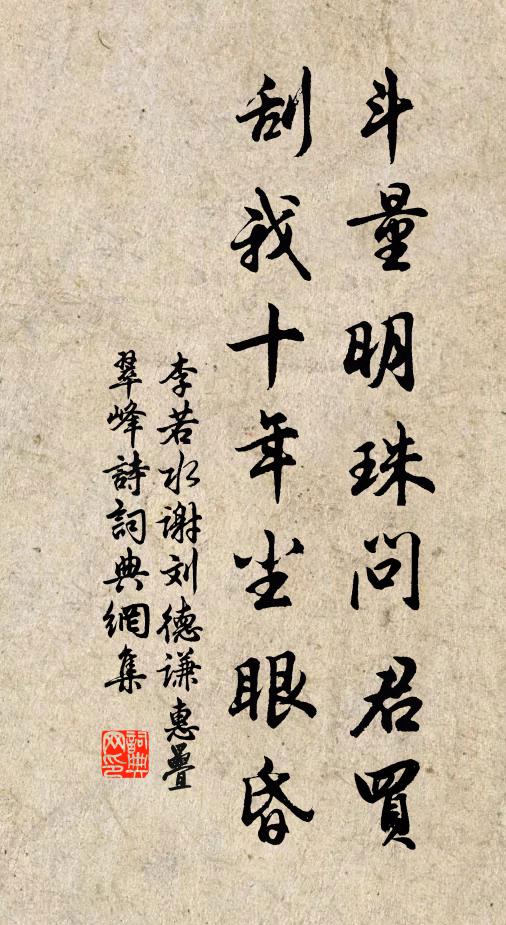 斗量明珠问君買
刮我十年尘眼昏
李若水谢刘德谦惠疊
翠峰詩詞典網集
詞典网印